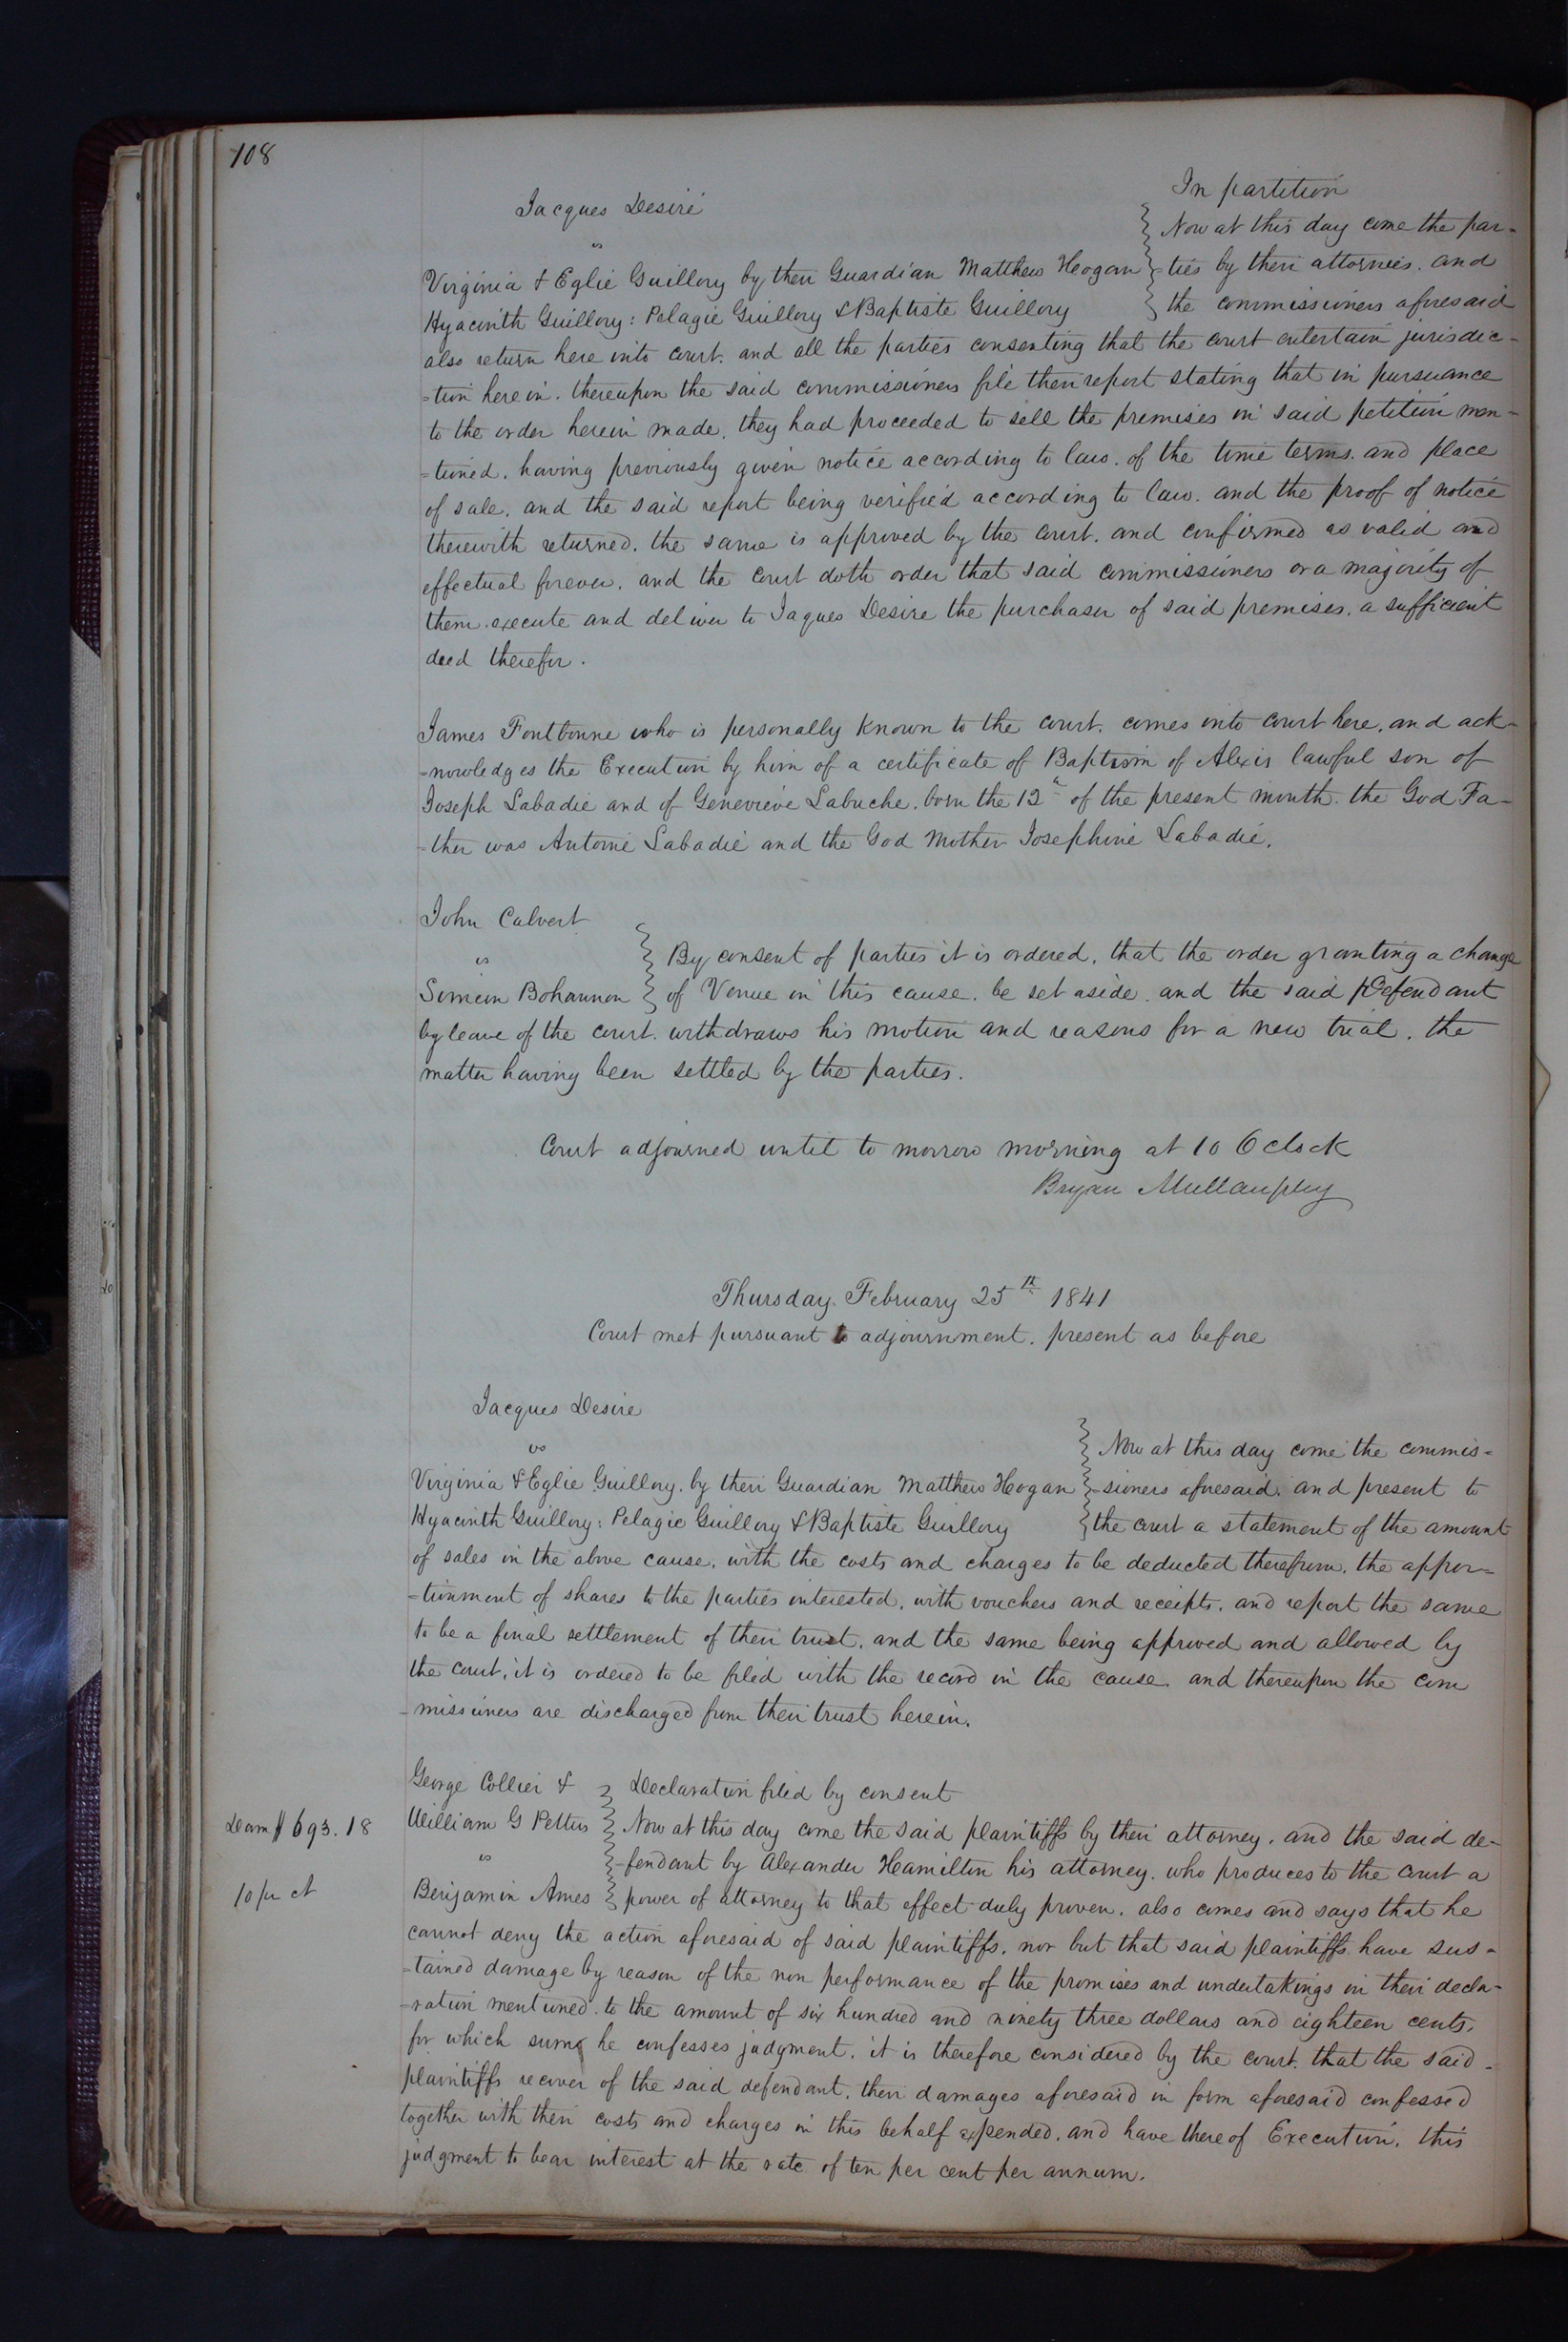 108
In partition
Jacques Desiré
vs
Now at this day come the par-
Virginia & Eglie Guillory by their Guardian Matthew Heogan
=ties by their attornies. and
Hyacinth Guillory: Pelagie Guillory & Baptiste Guillory
the commissioners aforesaid
also return here into court. and all the parties consenting that the court entertain jurisdic-
=tion herein. thereupon the said commissioners file their report stating that in pursuance
to the order herein made, they had proceeded to sell the premises in said petition men-
=tioned. having previously given notice according to law. of the time terms. and place
of sale, and the said report being verified according to law. and the proof of notice
therewith returned. the same is approved by the Court. and confirmed as valid and
effectual forever. and the court doth order that said commissioners or a majority of
them. execute and deliver to Jaques Desire the purchaser of said premises. a sufficient
deed therefor.
James Fontbonne who is personally known to the court. comes into court here, and ack-
=nowledges the Execution by him of a certificate of Baptism of Alexis lawful son of
Joseph Labadie and of Genevieve Labuche. born the 12th of the present month. the God Fa-
=ther was Antoine Labadie and the God Mother Josephine Labadie.
John Calvert
vs
By consent of parties it is ordered, that the order granting a change
Simeon Bohannon
of Venue in this cause. be set aside. and the said Defendant
by leave of the court. withdraws his motion and reasons for a new trial. the
matter having been settled by the parties.
Court adjourned until to morrow morning at 10 O clock
Bryan Mullanphy
Thursday. February 25th 1841
Court met pursuant to adjournment. present as before
Jacques Desire
vs
Now at this day come the commis-
Virginia & Eglie Guillory. by their Guardian Matthew Heogan
-sioners aforesaid. and present to
Hyacinth Guillory: Pelagie Guillory & Baptiste Guillory
the court a statement of the amount
of sales in the above cause. with the costs and charges to be deducted therefrom. the appor-
=tionment of shares to the parties interested. with vouchers and receipts. and report the same
to be a final settlement of their trust. and the same being approved and allowed by
the court. it is ordered to be filed with the record in the cause. and thereupon the com
-missioners are discharged from their trust herein.
George Collier &
Declaration filed by consent
Dam $ 693.18
William G Pettus
Now at this day come the said plaintiffs by their attorney. and the said de-
vs
-fendant by Alexander Hamilton his attorney. who produces to the Court a
10 pr ct
Benjamin Ames
power of attorney to that effect duly proven. also comes and says that he
cannot deny the action aforesaid of said plaintiffs. nor but that said plaintiffs have sus-
=tained damage by reason of the non performance of the promises and undertakings in their decla-
=ration mentioned. to the amount of six hundred and ninety three dollars and eighteen cents.
for which sum he confesses judgment. it is therefore considered by the court. that the said
plaintiffs recover of the said defendant. their damages aforesaid in form aforesaid confessed
together with their costs and charges in this behalf expended. and have thereof Execution. this
judgment to bear interest at the rate of ten per cent per annum.